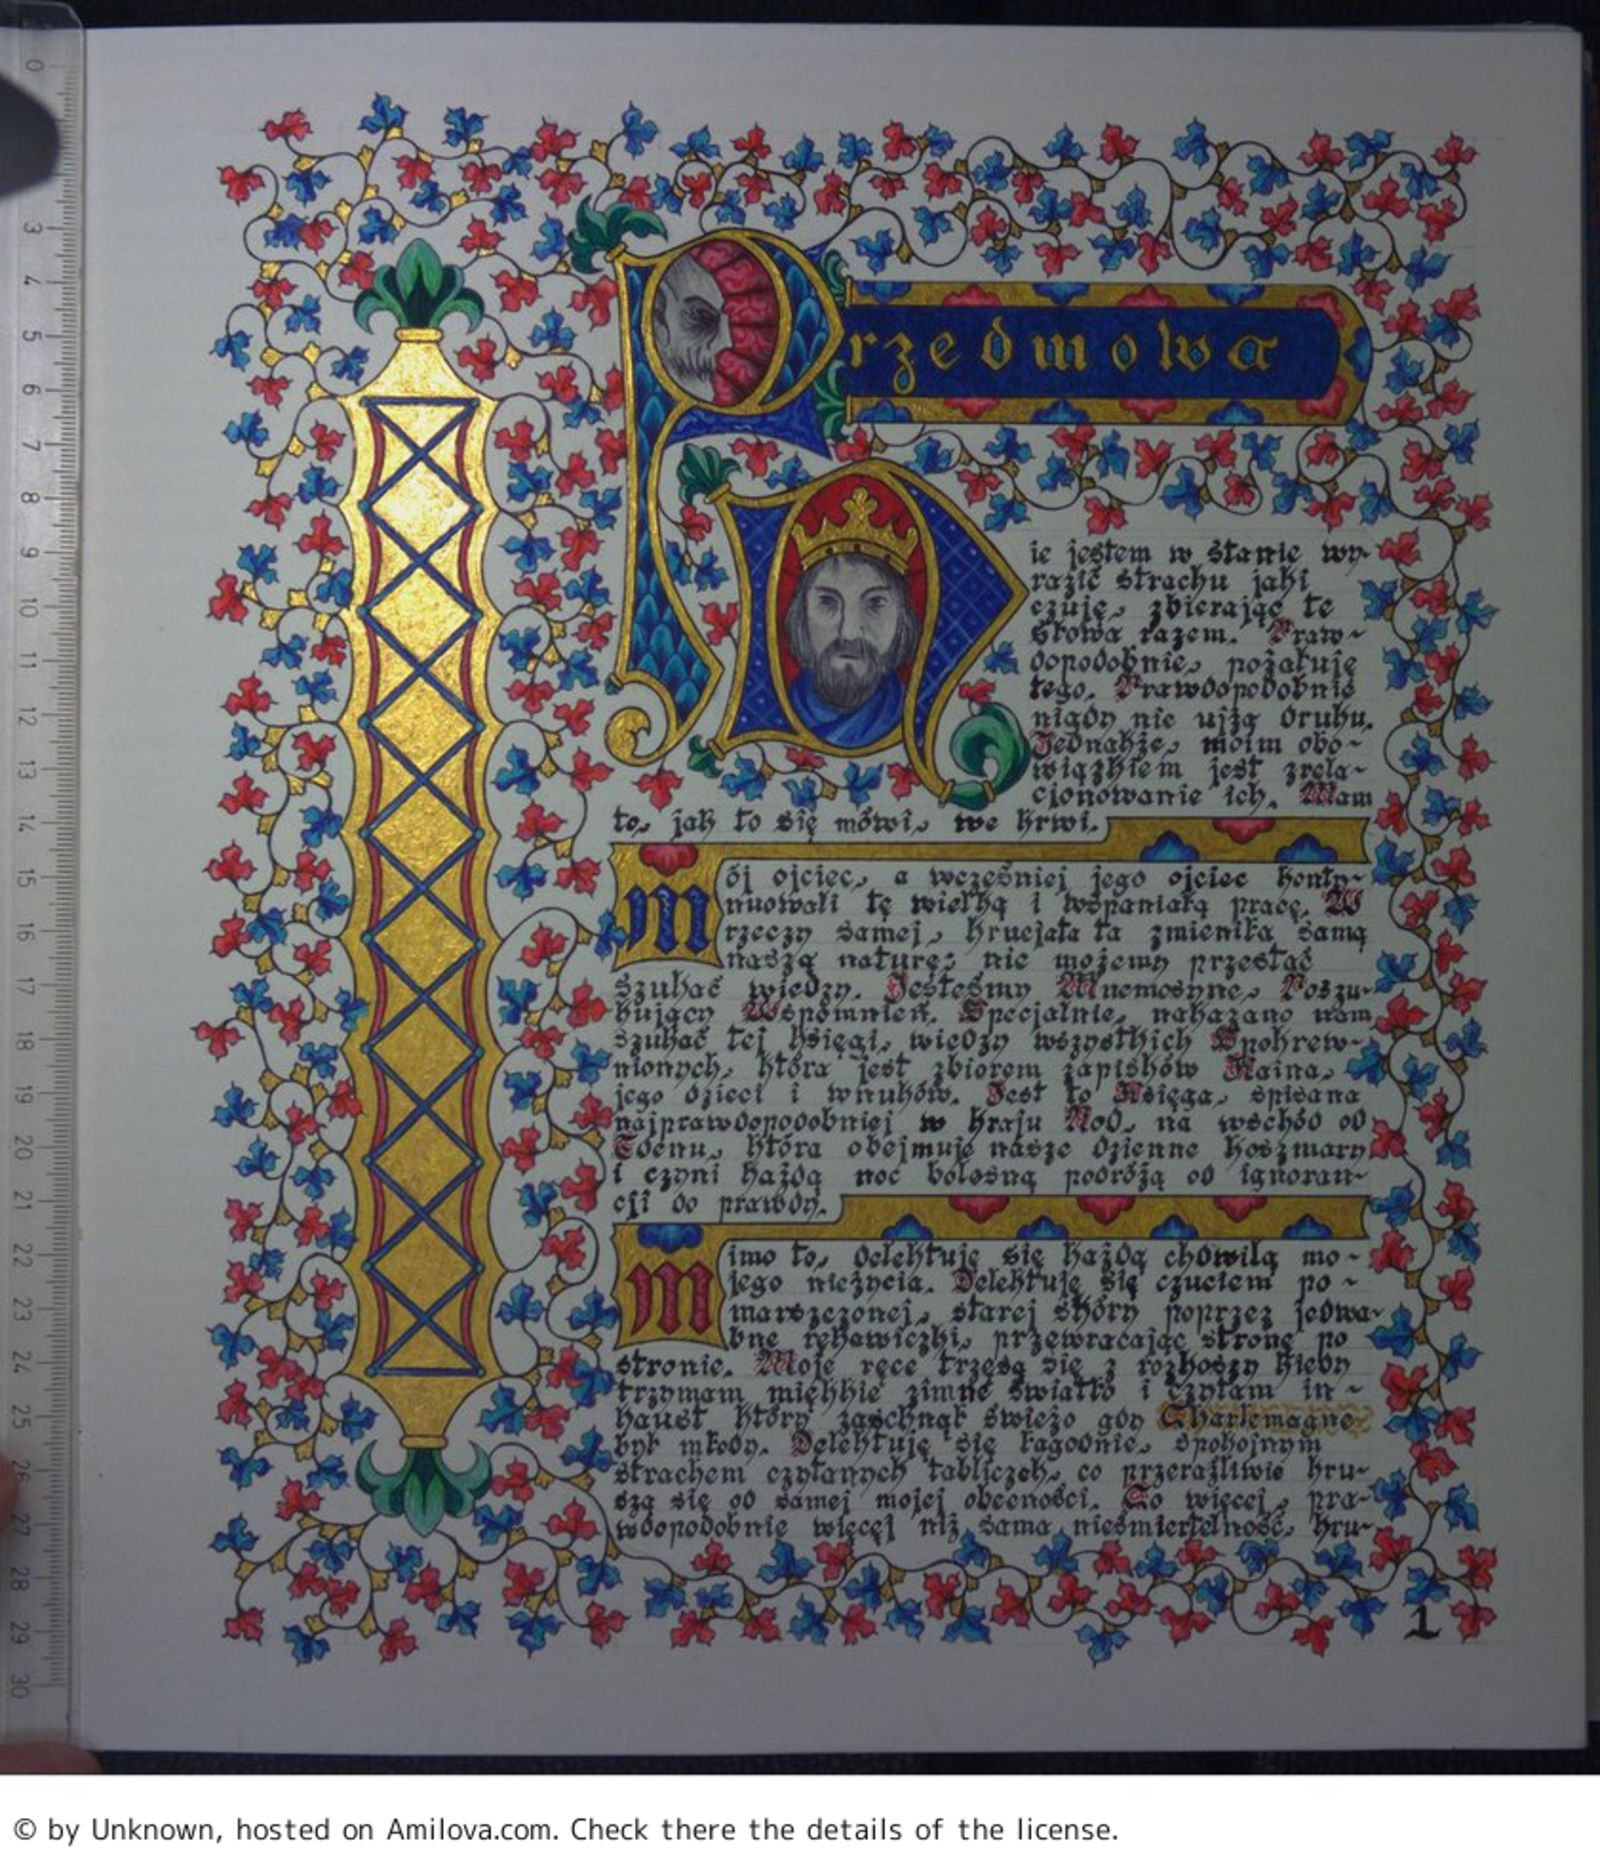 Przedmowa
Nie jestem w stanie wy-
razić strachu jaki
czuję, zbierając te
słowa razem. Praw-
dopodobnie, pożałuję
tego. Prawdopodobnie
nigdy nie ujżą druku.
Jednakże, moim obo-
wiązkiem jest zrela-
cjonowanie ich. Mam
to, jak to się mówi, we krwi.
Mój ojciec, a wcześniej jego ojciec konty-
nuowali tę wielką i wspaniałą pracę. W
rzeczy samej, krucjata ta zmieniła samą
naszą naturę, nie możemy przestać
szukać wiedzy. Jesteśmy Mnemosyne, Poszu-
kujący Wspomnień. Specjalnie, nakazano nam
szukać tej księgi, wiedzy wszystkich Spokrew-
nionych, która jest zbiorem zapisków Kaina,
jego dzieci i wnuków. Jest to Księga, spisana
najprawdopodobniej w kraju Nod, na wschód od
Edenu, która obejmuje nasze dzienne koszmary
i czyni każdą noc bolesną podróżą od ignoran-
cji do prawdy.
Mimo to, delektuję się każdą chowilą mo-
jego nieżycia. Delektuję się czuciem po-
marszczonej, starej skóry poprzez jedwa-
bne rękawiczki, przewracając stronę po
stronie. Moje ręce trzęsą się z rozkoszy kiedy
trzymam miękkie zimne światło i czytam in-
kaust który zaschnął świeżo gdy Charlemagne
był młody. Delektuję się łagodnie, spokojnym
strachem czytanych tabliczek, co przeraźliwie kru-
szą się od samej mojej obecności. Co więcej, pra-
wdopodobnie więcej niż sama nieśmiertelność, kru-
1
0
3
4
5
6
7
8
9
10
11
12
13
14
15
16
17
18
19
20
21
22
23
24
25
26
27
28
29
30
© by Unknown, hosted on Amilova.com. Check there the details of the license.